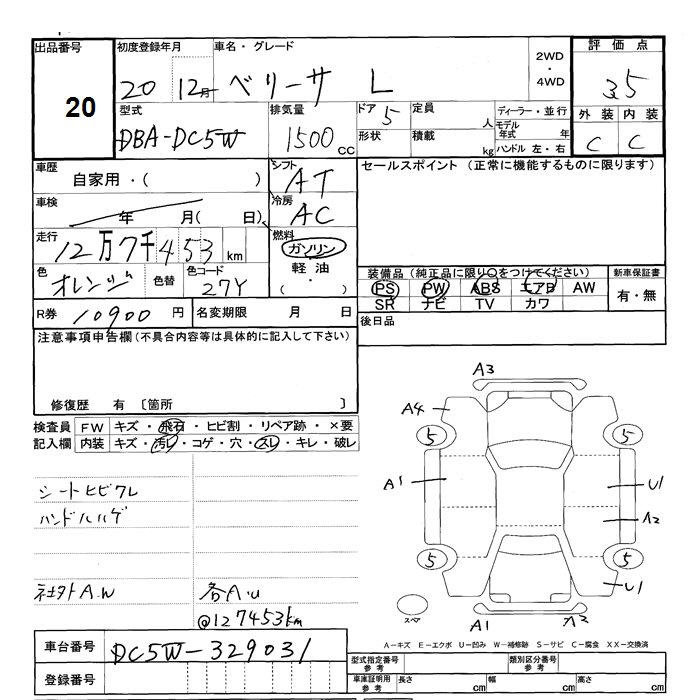 出品番号 初度登録年月 車名・グレード 2WD・4WD 評価点
20 20 12月 ベリーサ L 3.5
型式 排気量 ドア 5 定員 人 ディーラー・並行 外装 内装
DBA-DC5W 1500cc 形状 積載 kg モデル年式 年 ハンドル 左・右 C C
車歴 自家用・( ) シフト AT セールスポイント (正常に機能するものに限ります)
車検 年 月( 日) 冷房 AC
走行 12万7千453km 燃料 ガソリン
色 オレンジ 色替 色コード 27Y 軽油・( ) 装備品(純正品に限り○をつけてください) 新車保証書
PS PW ABS エアB AW 有・無
SR ナビ TV カワ
R券 10900円 名変期限 月 日 後日品
注意事項申告欄(不具合内容等は具体的に記入して下さい)
修復歴 有 〔箇所 〕
検査員記入欄 FW キズ・飛石・ヒビ割・リペア跡・×要
内装 キズ・汚レ・コゲ・穴・スレ・キレ・破レ
シートヒビワレ
ハンドルハゲ
社外A.W 各A.U
@127453km
A3
A4
5 5
A1 U1
A2
5 5
U1
スペア A1 A2
A-キズ E-エクボ U-凹み W-補修跡 S-サビ C-腐食 XX-交換済
車台番号 DC5W-329031
登録番号
型式指定番号 参考 類別区分番号 参考
車庫証明用 参考 長さ cm 幅 cm 高さ cm